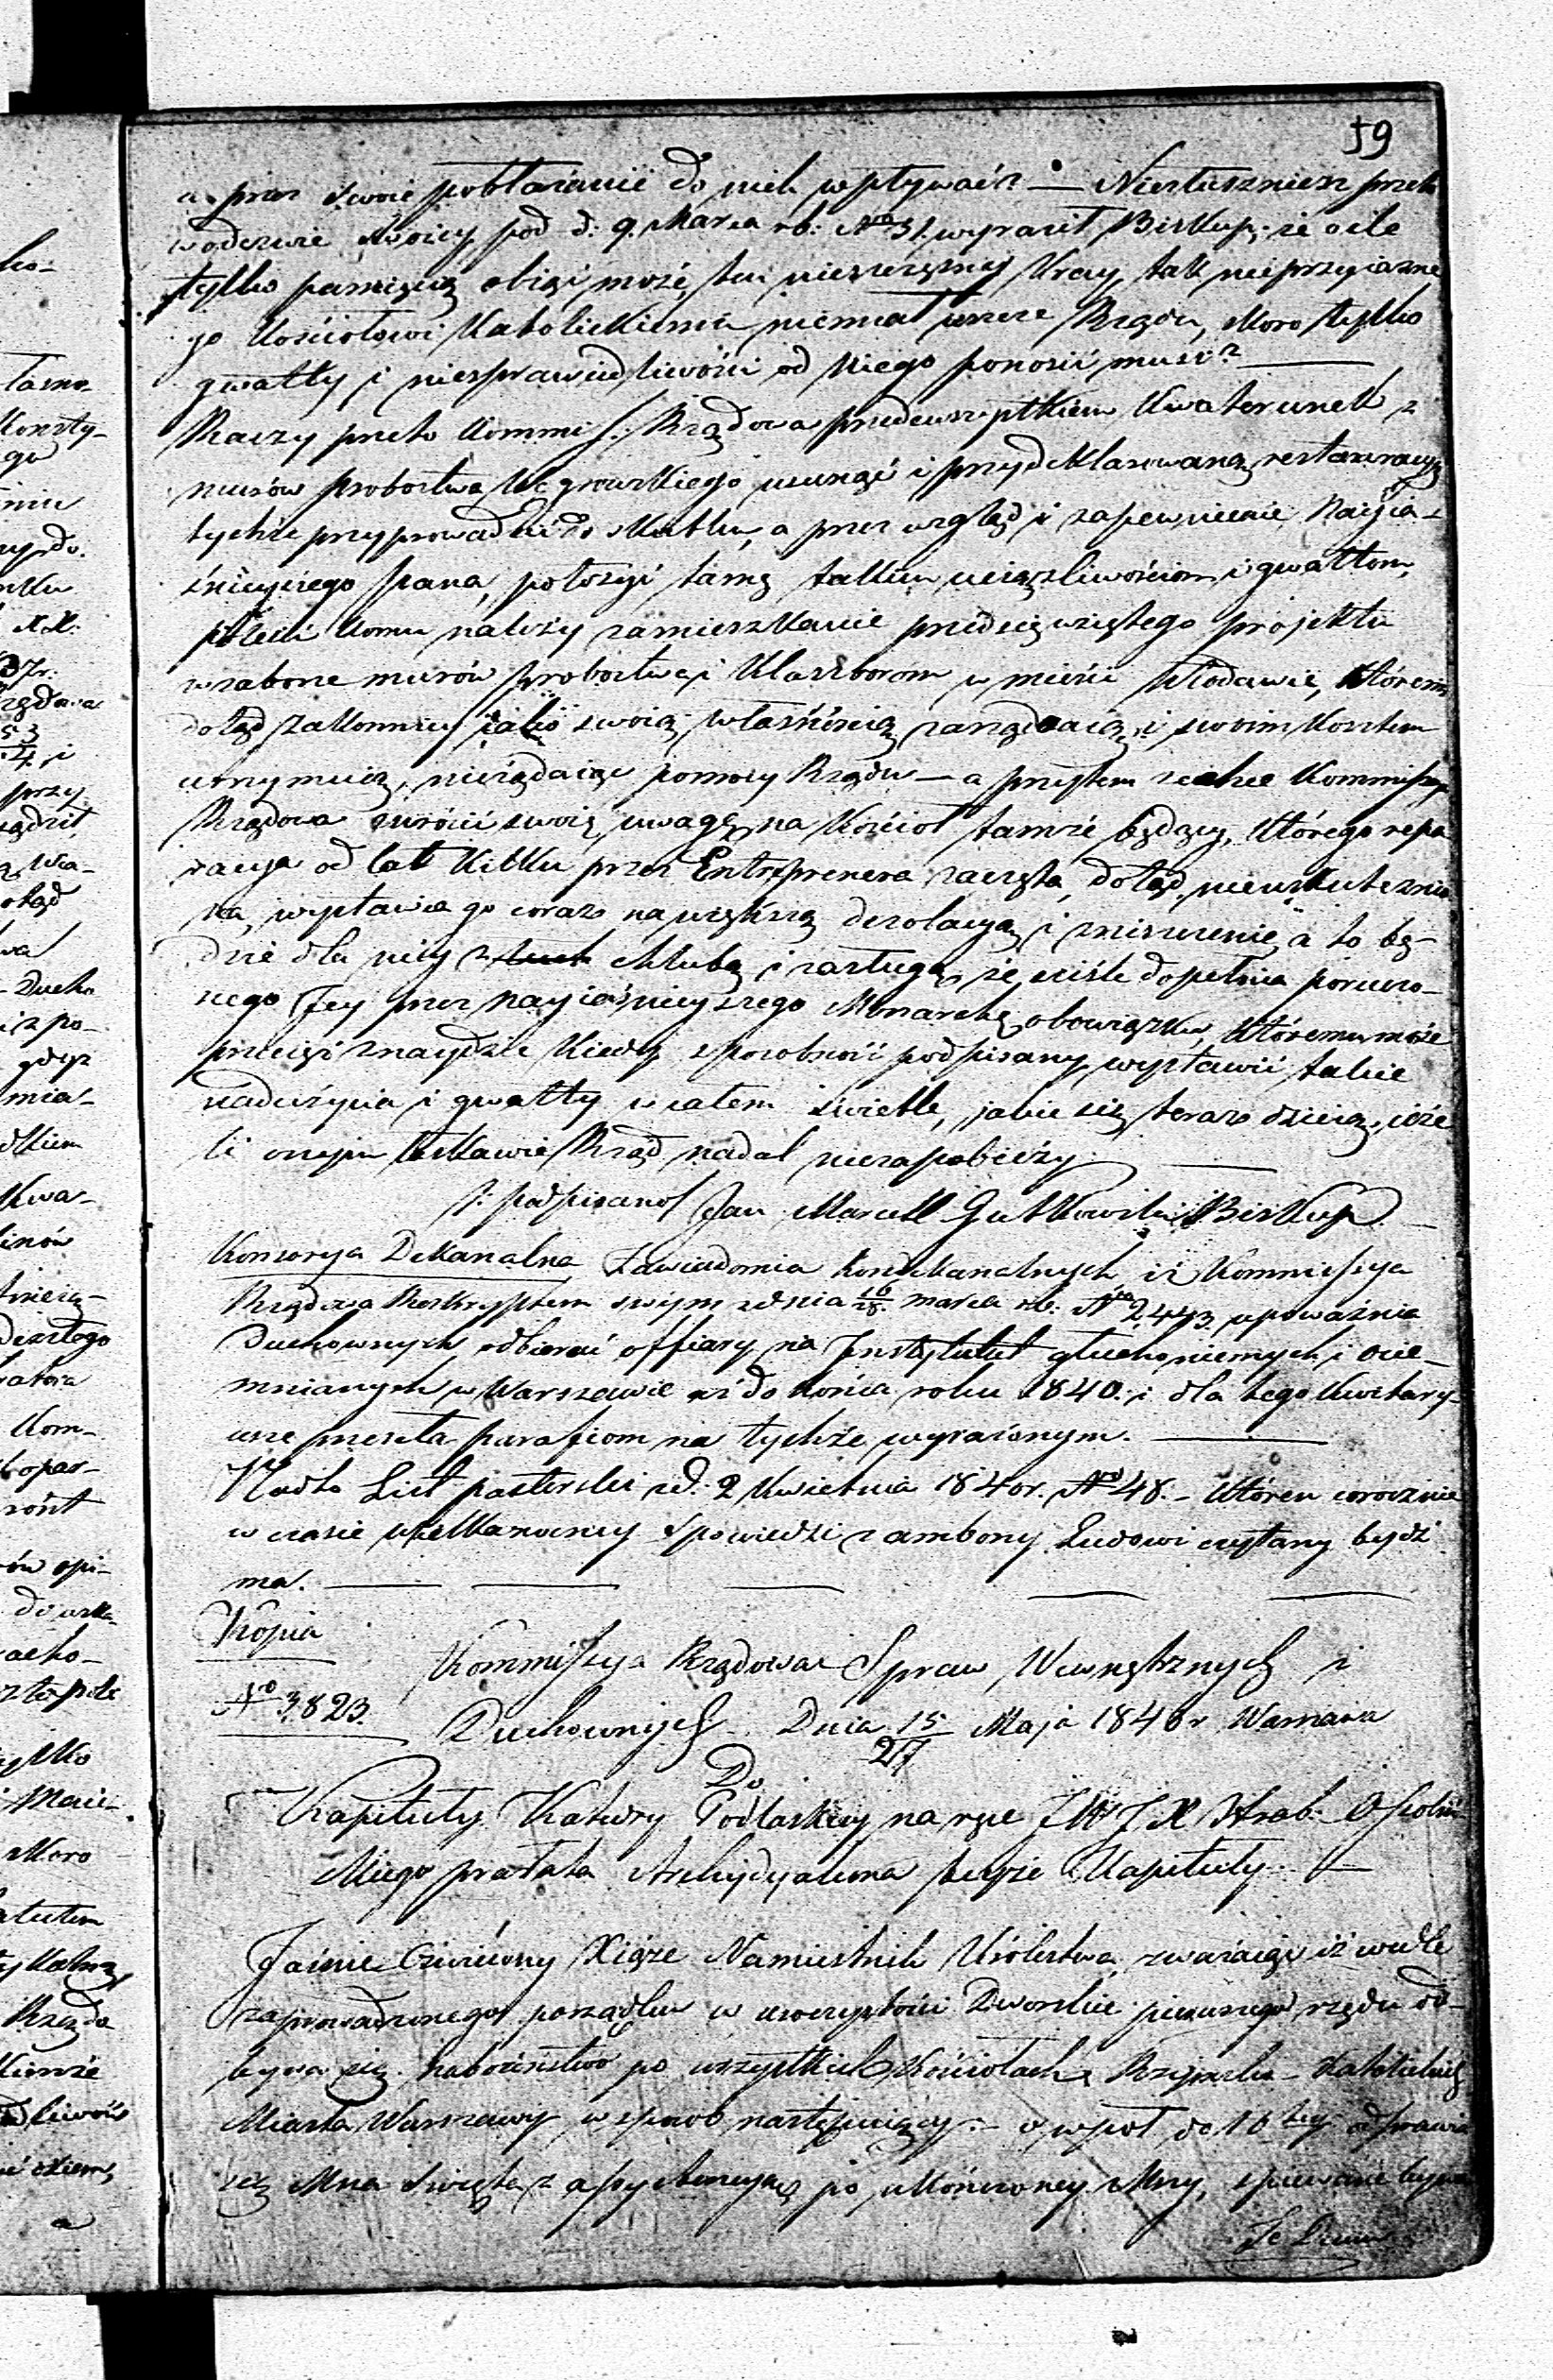 59
a przez swoie pobłażanie do nich wpływać? — Niesłusznież przeto
w odezwie swoiey pod d: 9. Marca rb: Nro 31. wyraził Biskup; że ile
tylko pamięcią obiąć może, ten nieszczęsny Kray, tak nieprzyiazne
go Kościołowi Katolickiemu niemiał ieszcze Rządu, skoro tylko
gwałty i niesprawiedliwości od niego ponosić musi? —
Raczy przeto Kommis: Rządowa przedewszystkiem Kwaterunek z
murów probostwa Węgrowskiego usunąć i przydeklarowaną restauracyą
tychże przyprowadzić do skutku, a przez wzgląd i zapewnienie Nayia-
śnieyszego Pana, położyć tamę takim uciążliwościom i gwałtom,
zlecić komu należy zamieszkanie przedsięwziętego projektu
w zaborze murów probostwa i Klasztorom w mieście Włodawie, któremi
dotąd zakonnicy iako swoią własnością zarządzaią, i swoim kosztem
utrzymuią, nieżądaiąc pomocy Rządu — a przytem zechce Kommissya
Rządowa zwrócić swoią uwagę na Kościoł tamże będący, którego repa
racya od lat kilku przez Entreprenera zaczęta, dotąd nieuskutecznio
na, wystawia go coraz na większą dezolacyą i zniszczenie, a to bę-
dzie dla niey chlubą i zasługą, że ściśle dopełnia porucza-
nego Jey przez nayiaśnieyszego Monarchę obowiązku, któremu może
przecięż znaydzie kiedyś sposobność podpisany wystawić takie
nadużycia i gwałty w całem świetle, jakie się teraz dzieią, ieże
li onym łaskawie Rząd nadal niezapobieży. —
/: podpisano/ Jan Marcell Gutkowski Biskup. —
Konsorya Dekanalna Zawiadomia Kondekanalnych, iż Kommissya
Rządowa Reskryptem swym z dnia 16/28. marca rb: Nro 2,443 upoważnia
Duchownych odbierać offiary na Instytutut głuchoniemych i ocie-
mnianych w Warszawie aż do końca roku 1840. i dla tego kwitary-
usze przesła parafiom na tychże wyrażonym. —
Nadto List pasterski z d. 2 Kwietnia 1840r. Nro 48. - któren corocznie
w czasie wielkanocney spowiedzi z ambony Ludowi czytany bydź
ma. —
Kopia
Kommissya Rządowa Spraw Wewnętrznych i
No 3,823.
Duchownych. Dnia 15/27 Maja 1840r Warszawa
Do
Kapituły Katedry Podlaskiey na ręce JWJX Hrab: Ossoliń
skiego prałata Archidyakona teyże Kapituły. —
Jaśnie Oświecony Xiąże Namiestnik Królestwa, zważaiąc iż wedle
zaprowadzonego porządku w uroczystości Dworskie pierwszego rzędu od-
bywa się nabożeństwo po wszystkich Kościołach Rzymsko-Katolickich
Miasta Warszawy w sposób następuiący: - o wpoł do 10tey odprawia
się Msza święta z assystencyą, po ukończoney Mszy, śpiewane bywa
Te Deum